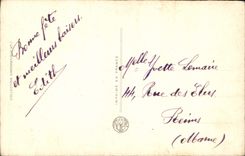 Bonne fête
et meilleurs baisers
Edith
Melle Yvette Lemaire
114, Rue des Elus
Reims
(Marne)